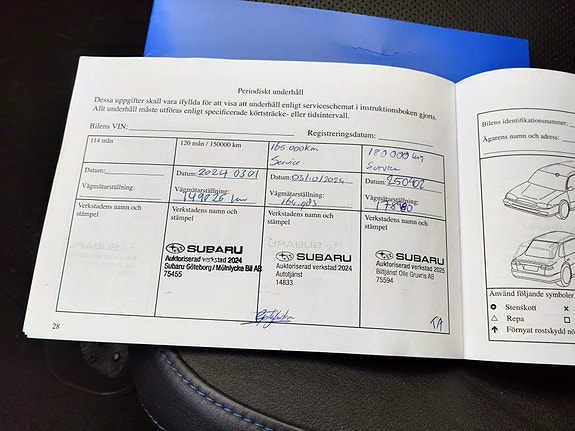 Periodiskt underhåll
Dessa uppgifter skall vara ifyllda för att visa att underhåll enligt serviceschemat i instruktionsboken gjorts.
Allt underhåll måste utföras enligt specificerade körsträcke- eller tidsintervall.
Bilens VIN:
Registreringsdatum:
114 mån
Datum:
Vägmätarställning:
Verkstadens namn och
stämpel
120 mån / 150000 km
Datum: 2024 03 01
Vägmätarställning:
149026 km
Verkstadens namn och
stämpel
SUBARU
Auktoriserad verkstad 2024
Subaru Göteborg/Mölnlycke Bil AB
75455
165 000km
Service
Datum: 03/10/2024
Vägmätarställning:
Verkstadens namn och
stämpel
SUBARU
Auktoriserad verkstad 2024
Autotjänst
14833
180 000 km
Service
Datum: 250402
Vägmätarställning:
Verkstadens namn och
stämpel
SUBARU
Auktoriserad verkstad 2025
Biltjänst Olle Gruvris AB
75594
28
Bilens identifikationsnummer:
Ägarens namn och adress:
Använd följande symboler
Stenskott
Repa
Förnyat rostskydd